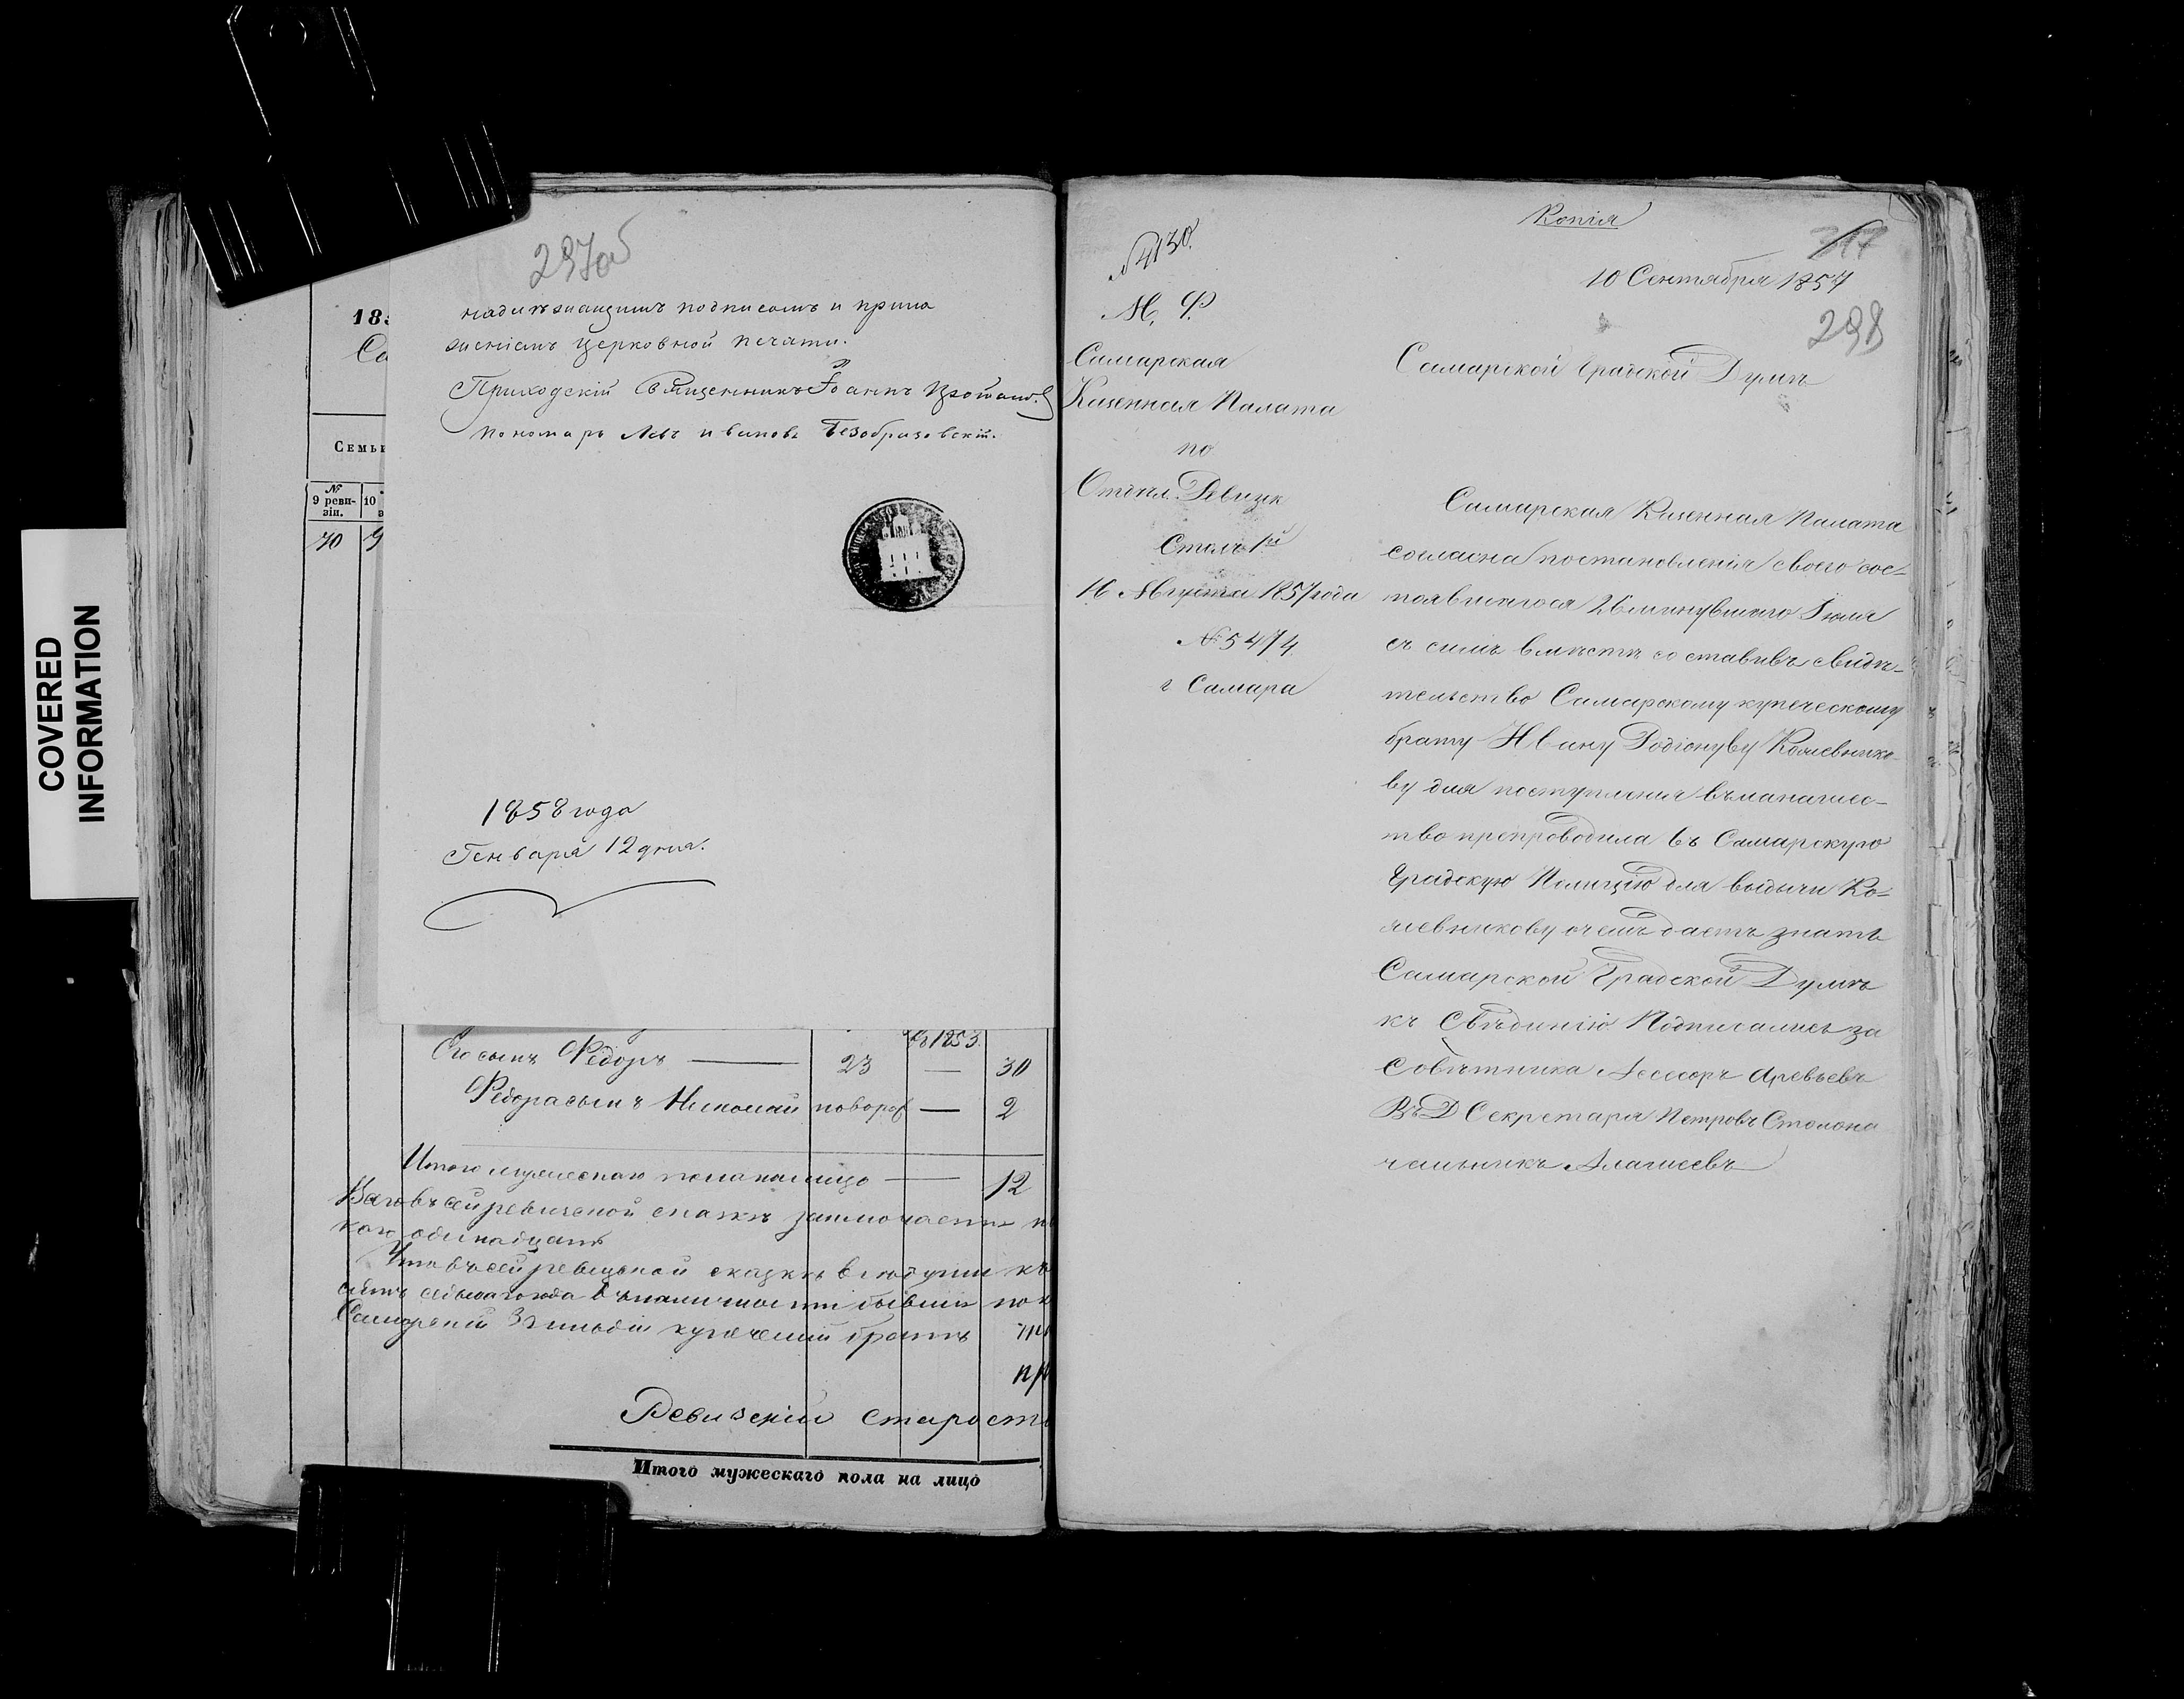 COVERED
INFORMATION
297об
надлежащимъ подписомъ и прило
женіемъ церковной печати.
Приходскій Священникъ Іоаннъ
пономарь Левъ Ивановъ Безобразовскій.
1858 года
Генваря 12 дня.
185
Са
Семьи
№
9 реви-
зіи.
10
70
9
1853.
Его сынъ Федоръ — 23 — 30
Федора сынъ Николай новорож — 2
Итого мужескаго пола на лицо — 12
Всего въ сей ревизской сказкѣ заключается
одинадцать
Что въ сей ревизской сказкѣ все души
бывшія
Самарскій 3 гильдіи купеческій братъ
Ревизскій старост
Итого мужескаго пола на лицо
Копія
317
№ 4130.
10 Сентября 1857
298
М. Ф.
Самарская
Казенная Палата
по
Отдѣл. Ревизск
Столъ 1й
16 Августа 1857 года
№ 5474
г Самара
Самарской Градской Думѣ
Самарская Казенная Палата
согласна постановленія своего сос-
тоявшагося 26 минувшаго Іюля
съ симъ вмѣстѣ составивъ свидѣ-
тельство Самарскому купеческому
брату Ивану Родіонову Кожевнико-
ву для поступленія въ манашес-
тво препроводила въ Самарскую
Градскую Полицію для выдачи Ко-
жевникову о чемъ даетъ знать
Самарской Градской Думѣ
къ свѣденію Подписались за
Совѣтника Асесоръ Аревьевъ
ВъД Секретаря Петровъ Столона
чальникъ Алашеевъ